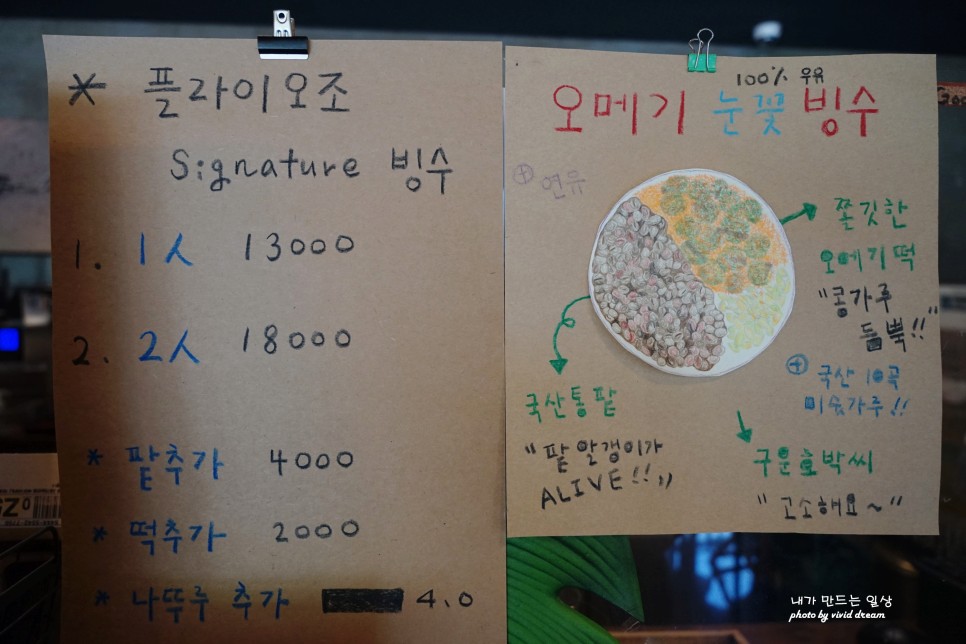 * 플라이오조
Signature 빙수
1. 1人 13000
2. 2人 18000
* 팥추가 4000
* 떡추가 2000
* 나뚜루 추가 4.0
100% 우유
오메기 눈꽃 빙수
⊕ 연유
쫄깃한
오메기떡
"콩가루
듬뿍!!"
⊕ 국산 10곡
미숫가루!!
국산통팥
"팥알갱이가
ALIVE!!"
구운호박씨
"고소해요~"
내가 만드는 일상
photo by vivid dream